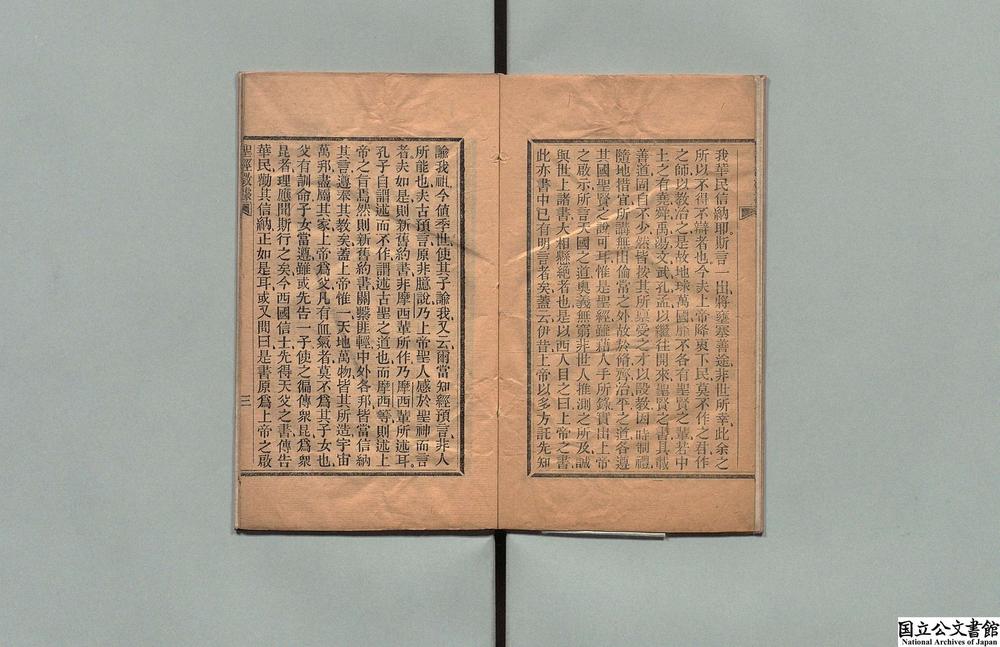 我華民信納、卽斯言一出、將壅塞善途、非世所幸、此余之
所以不得不辯者也、今夫上帝降衷下民、莫不作之君、作
之師、以敎治之、是故地球萬國、靡不各有聖賢之輩、若中
土之有堯舜禹湯文武孔孟、以繼往開來、聖賢之書、具載
善道、固自不少、然皆按其所稟受之才、以設敎、因時制禮、
隨地措宜、所講無出倫常之外、故於脩齊治平之道、各遵
其國聖賢之說可耳、惟是聖經雖藉人手所錄、實出上帝
之啟示、所言天國之道、奧義無窮、非世人推測之所及、誠
與世上諸書、大相懸絕者也、是以西人目之曰、上帝之書、
此亦書中已有明言者矣、蓋云伊昔上帝以多方託先知
諭我祖、今値季世、使其子諭我、又云爾當知經預言、非人
所能也、夫古預言原非臆說、乃上帝聖人感於聖神而言
者、夫如是則新舊約書、非摩西輩所作、乃摩西輩所述耳、
孔子自謂述而不作、謂述古聖之道也、而摩西等、則述上
帝之旨焉、然則新舊約書、關繫匪輕、中外各邦、皆當信納
其言、遵奉其敎矣、蓋上帝惟一、天地萬物、皆其所造、宇宙
萬邦、盡屬其家、上帝爲父、凡有血氣者、莫不爲其子女也、
父有訓命、子女當遵、雖或先告一子、使之徧傳衆昆、爲衆
昆者、理應聞斯行之矣、今西國信士、先得天父之書、傳告
華民、勸其信納、正如是耳、或又問曰、是書原爲上帝之啟
三
国立公文書館
National Archives of Japan